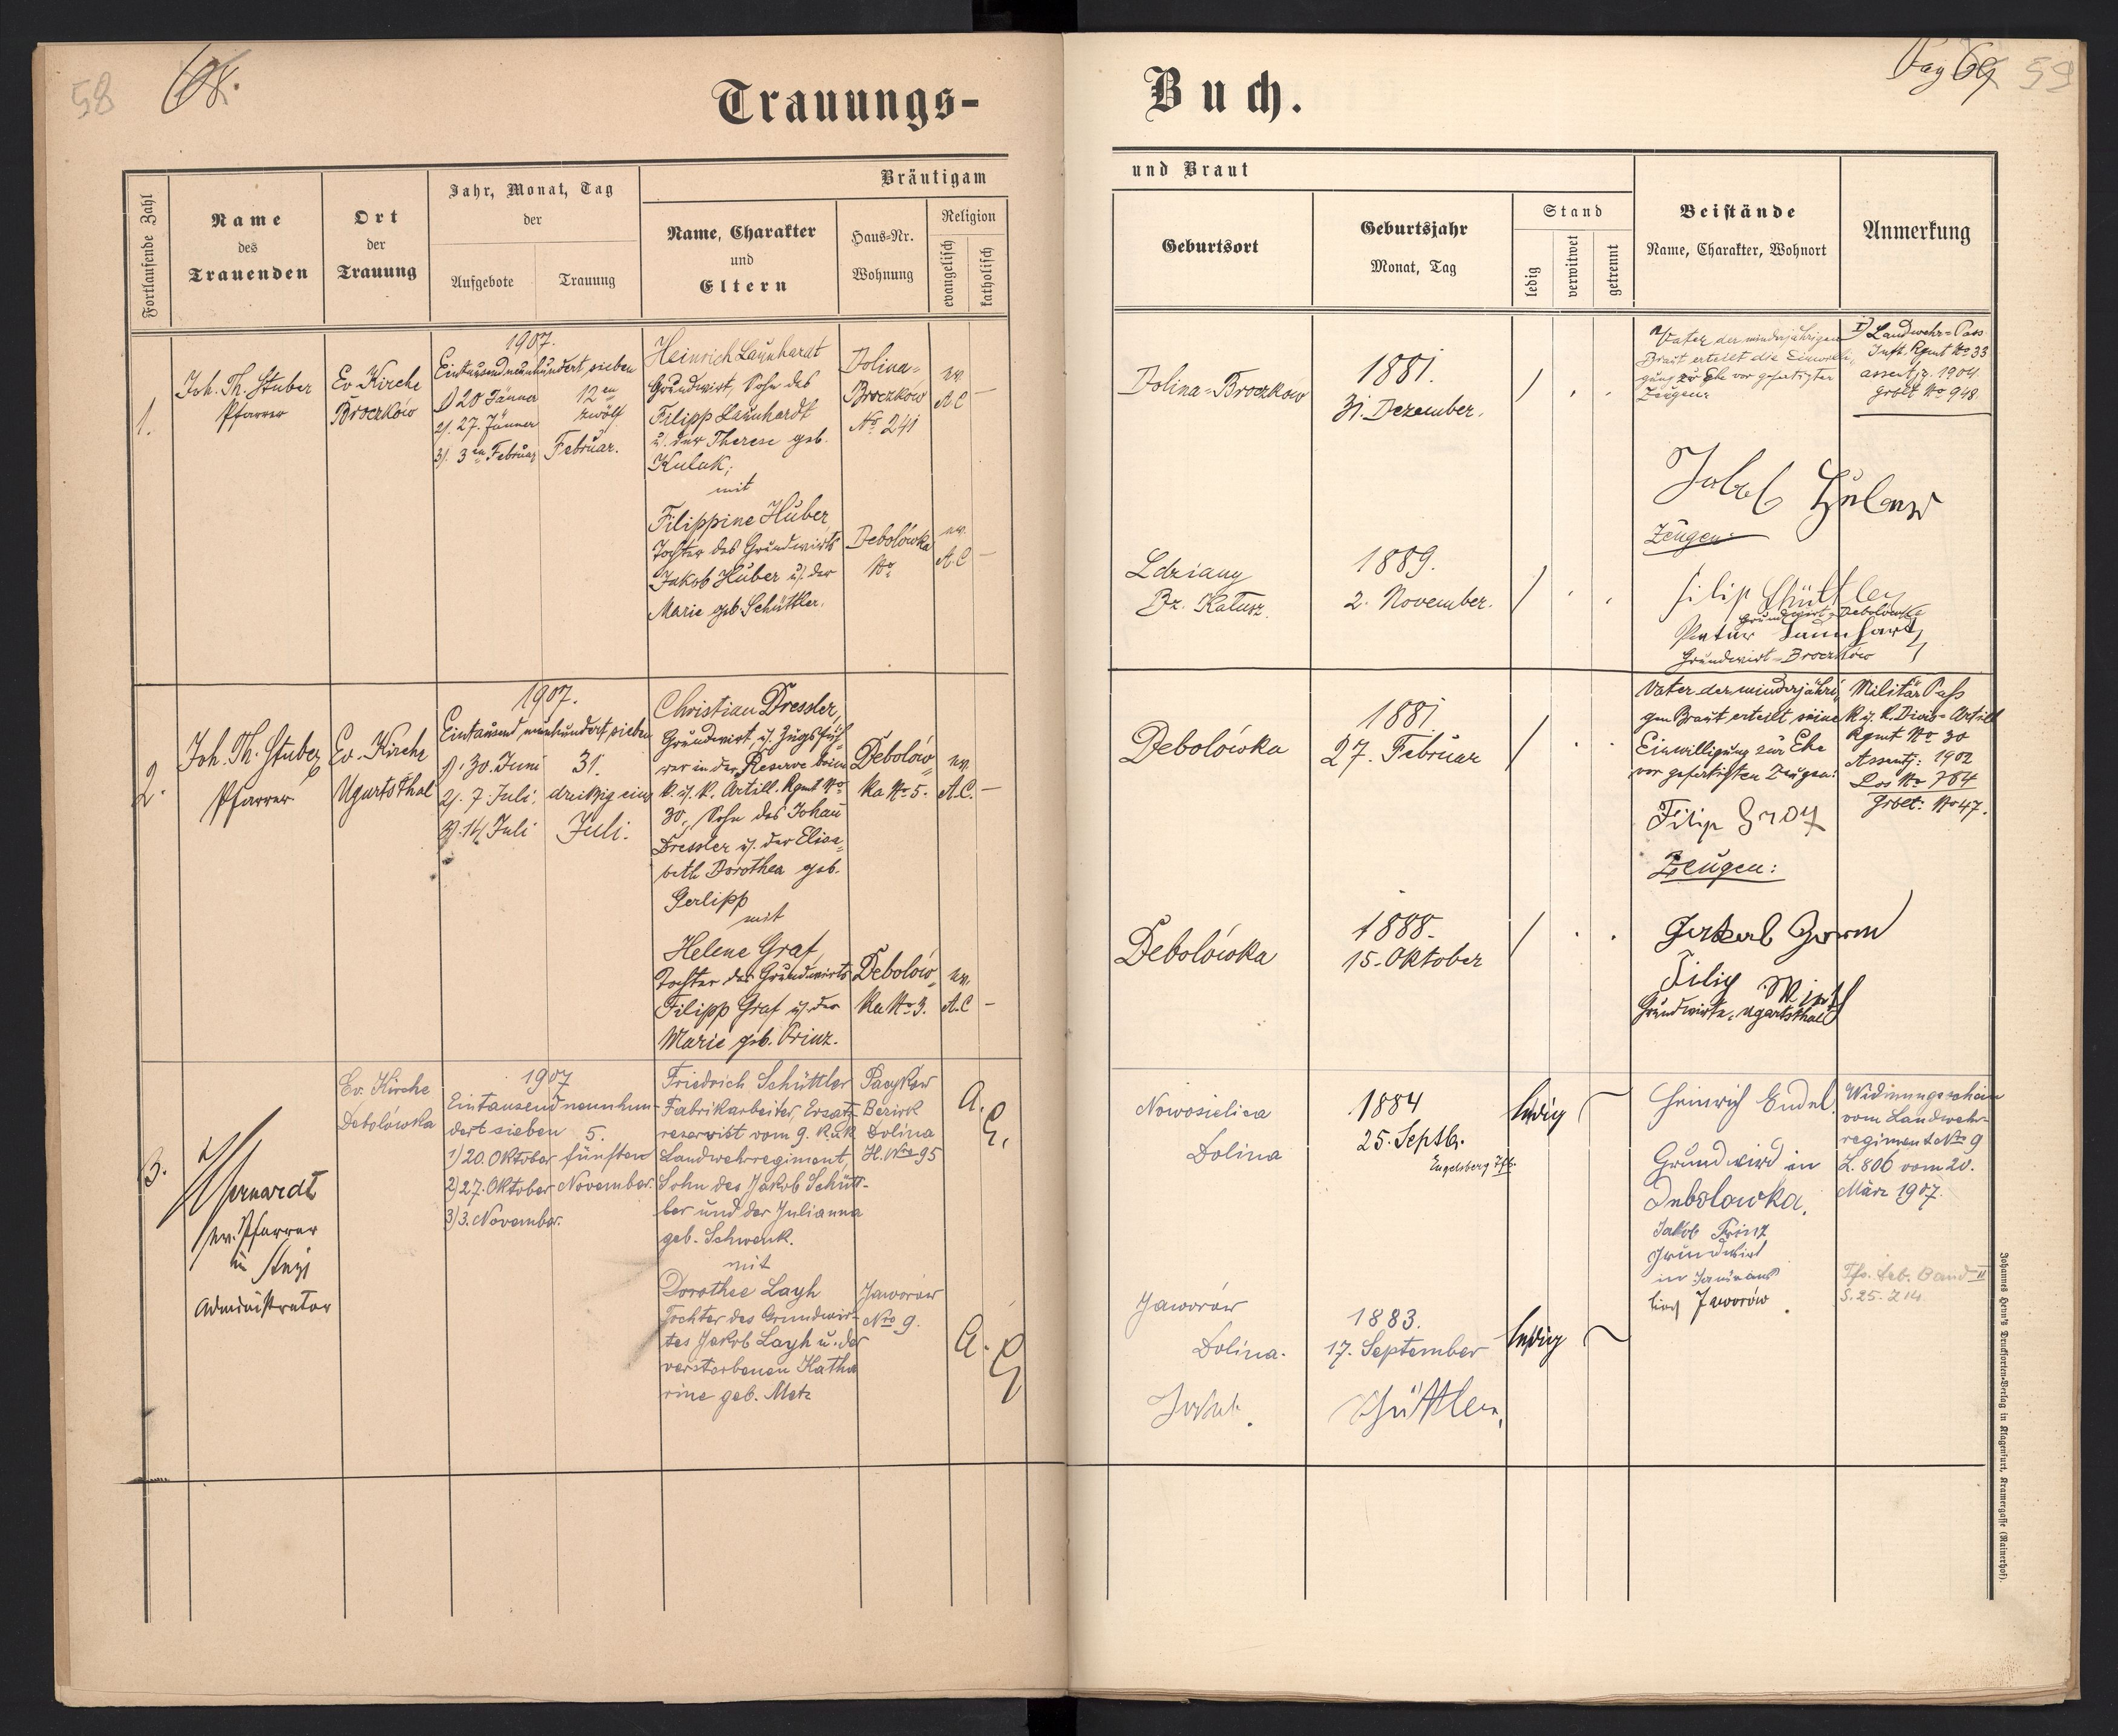 58
68.
Trauungs-
Fortlaufende Zahl
Name
des
Trauenden
Ort
der
Trauung
Jahr, Monat, Tag
der
Aufgebote
Trauung
Bräutigam
Name, Charakter
und
Eltern
Haus-Nr.
Wohnung
Religion
evangelisch
katholisch
1.
Joh. Th. Stuber
Pfarrer
Ev. Kirche
Broczków
1907.
Eintausendneunhundert sieben
1) 20 Jänner
2). 27. Jänner
3). 3en Februar
12en
zwölf
Februar.
Heinrich Launhardt
Grundwirt, Sohn des
Filipp Launhardt
u. der Therese geb.
Kulak,
mit
Filippine Huber,
Tochter des Grundwirts
Jakob Huber u. der
Marie geb. Schüttler.
Dolina-
Broczków
No 241
ev.
A C
—
Debolówka
No
ev.
A. C
—
2.
Joh. Th. Stuber
Pfarrer
Ev. Kirche
Ugartsthal
1907.
Eintausend neunhundert sieben
1). 30. Juni
2). 7 Juli,
3). 14 Juli
31.
dreißig eins
Juli.
Christian Dressler,
Grundwirt, u. Zugsfüh
rer in der Reserve beim
k. u. k. Artill. Rgmt No
30, Sohn des Johan
Dressler u. der Elisa-
beth Dorothea geb.
Gerlipp
mit
Helene Graf,
Tochter des Grundwirts
Filipp Graf u. der
Marie geb. Prinz.
Debolów-
ka No 5.
ev.
A.C.
—
Debolów-
ka No 3.
ev.
A.C
—
3.
ev. Pfarrer
in Stryj
Administrator
Ev. Kirche
Debolówka
1907
Eintausend neunhun-
dert sieben
1) 20. Oktober
2) 27. Oktober
3) 3. November.
5.
fünften
November.
Friedrich Schüttler
Fabrikarbeiter, Ersatz-
reservist vom 9. k. u. k
Landwehrregiment,
Sohn des Jakob Schütt-
ler und der Julianna
geb. Schwenk.
mit
Dorothee Layh
Tochter des Grundwir-
tes Jakob Layh u. der
verstorbenen Katha
rine geb. Metz
Bezirk
Dolina
H. Nro 95
A.
C.
Jaworów
Nro 9.
A.
C
Buch.
Pag 69
59
und Braut
Geburtsort
Geburtsjahr
Monat, Tag
Stand
ledig
verwitwet
getrennt
Beistände
Name, Charakter, Wohnort
Anmerkung
Dolina-Broczków
1881.
31. Dezember.
/
Vater der minderjährigen
Braut erteilt die Einwilli-
gung zur Ehe vor gefertigten
Zeugen:
1) Landwehr-Pass
Inft. Rgmt No 33
assentj. 1904
Grblt No 948.
Jakob Huber
Zeugen:
Ldziany
Bz. Kalusz.
1889.
2. November.
/
Filip Schüttler
Grundwirt-Debolówka
Launhardt
Grundwirt-Broczków
Debolówka
1881.
27. Februar
/
Vater der minderjähri-
gen Braut erteilt seine
Einwilligung zur Ehe
vor gefertigten Zeugen:
Militär Paß
k. u. k. Divis-Artill
Rgmt No 30
Assentj: 1902
Los No 784
Grbet: No 47.
Filip Graf
Zeugen:
Debolówka
1888.
15. Oktober
/
Filip
Grundwirte, Ugartsthal
Nowosielica
Dolina
1884
25. Septb.
Engelsberg
ledig
Heinrich Endel
Grundwird in
Debolowka.
Jakob Prinz
Grundwirt
in
Jaworów
vom Landwehr-
regiment Nro 9
Z. 806 vom 20.
März 1907.
Tfs. Geb. Band II
S. 25. Z 14.
Jaworów
Dolina.
1883.
17. September
ledig
Jakob
Schüttler,
Johannes Heyn's Drucksorten-Verlag in Klagenfurt, Kramergasse (Rainerhof).